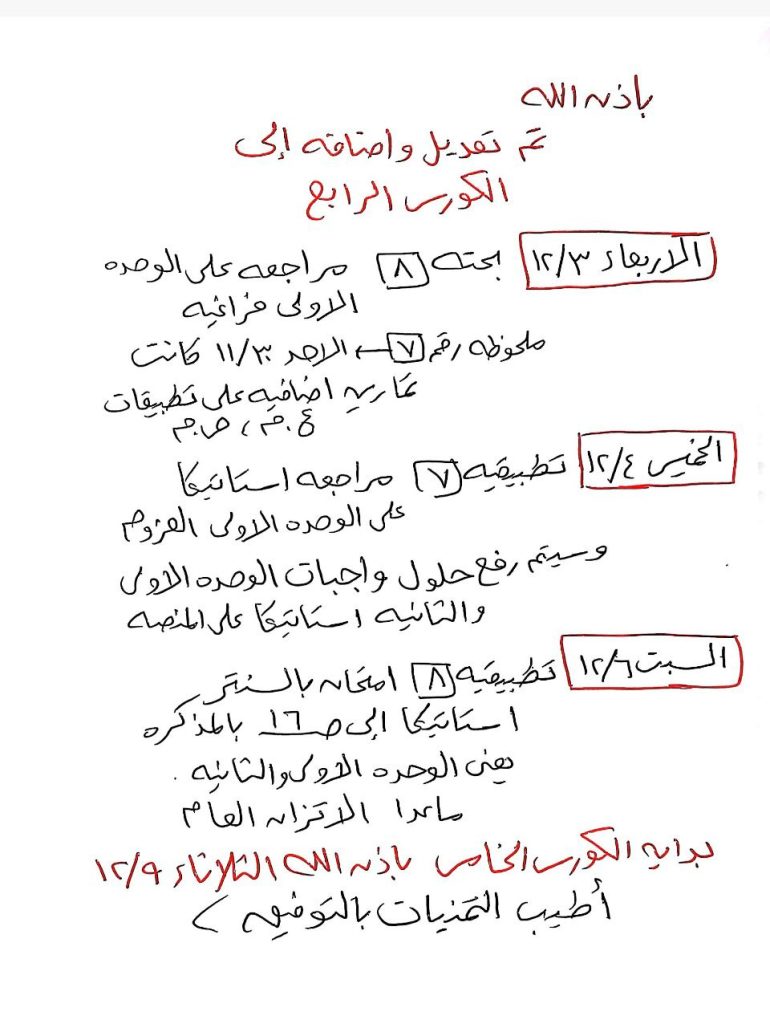 باذن الله
تم تعديل واضافه إلى
الكورس الرابع
الاربعاء ١٢/٣ بحته ٨ مراجعه على الوحده
الاولى فراغيه
ملحوظه رقم ٧ ← الاحد ١١/٣٠ كانت
تمارين اضافيه على تطبيقات
ع.م ، ص.م
الخميس ١٢/٤ تطبيقيه ٧ مراجعه استاتيكا
على الوحده الاولى العزوم
وسيتم رفع حلول واجبات الوحده الاولى
والثانيه استاتيكا على المنصه
السبت ١٢/٦ تطبيقيه ٨ امتحان بالسنتر
استاتيكا إلى ص ١٦ بالمذكره
يعنى الوحده الاولى والثانيه .
ماعدا الاتزان العام
بدايه الكورس الخامس باذن الله الثلاثاء ١٢/٩
أطيب التمنيات بالتوفيق